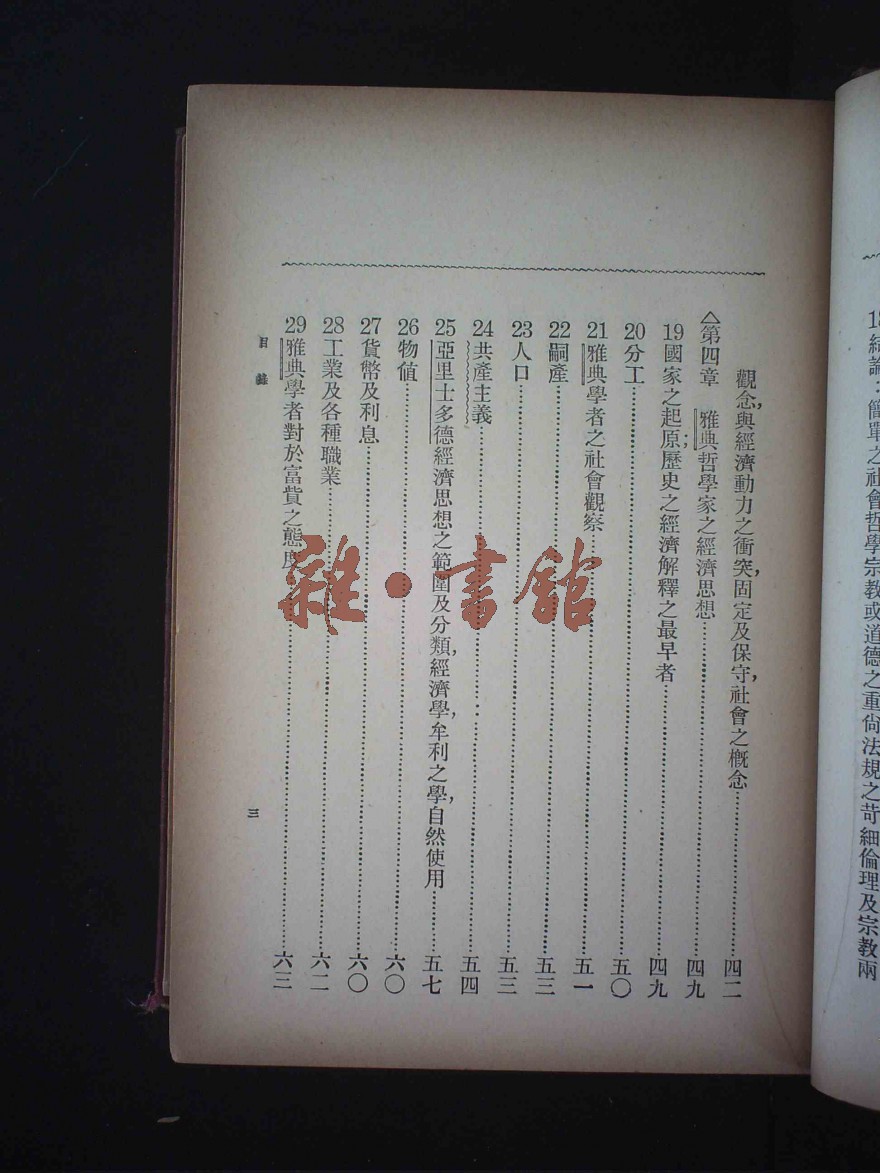 18結論：簡單之社會哲學宗教或道德之重尙法規之苛細倫理及宗教兩
觀念，與經濟動力之衝突，固定及保守，社會之槪念……四二
△第四章　雅典哲學家之經濟思想……四九
19國家之起原；歷史之經濟解釋之最早者……四九
20分工……五〇
21雅典學者之社會觀察……五一
22嗣產……五三
23人口……五三
24共產主義……五四
25亞里士多德經濟思想之範圍及分類，經濟學，牟利之學，自然使用……五七
26物値……六〇
27貨幣及利息……六〇
28工業及各種職業……六二
29雅典學者對於富貲之態度……六三
目錄
三
雜·書館